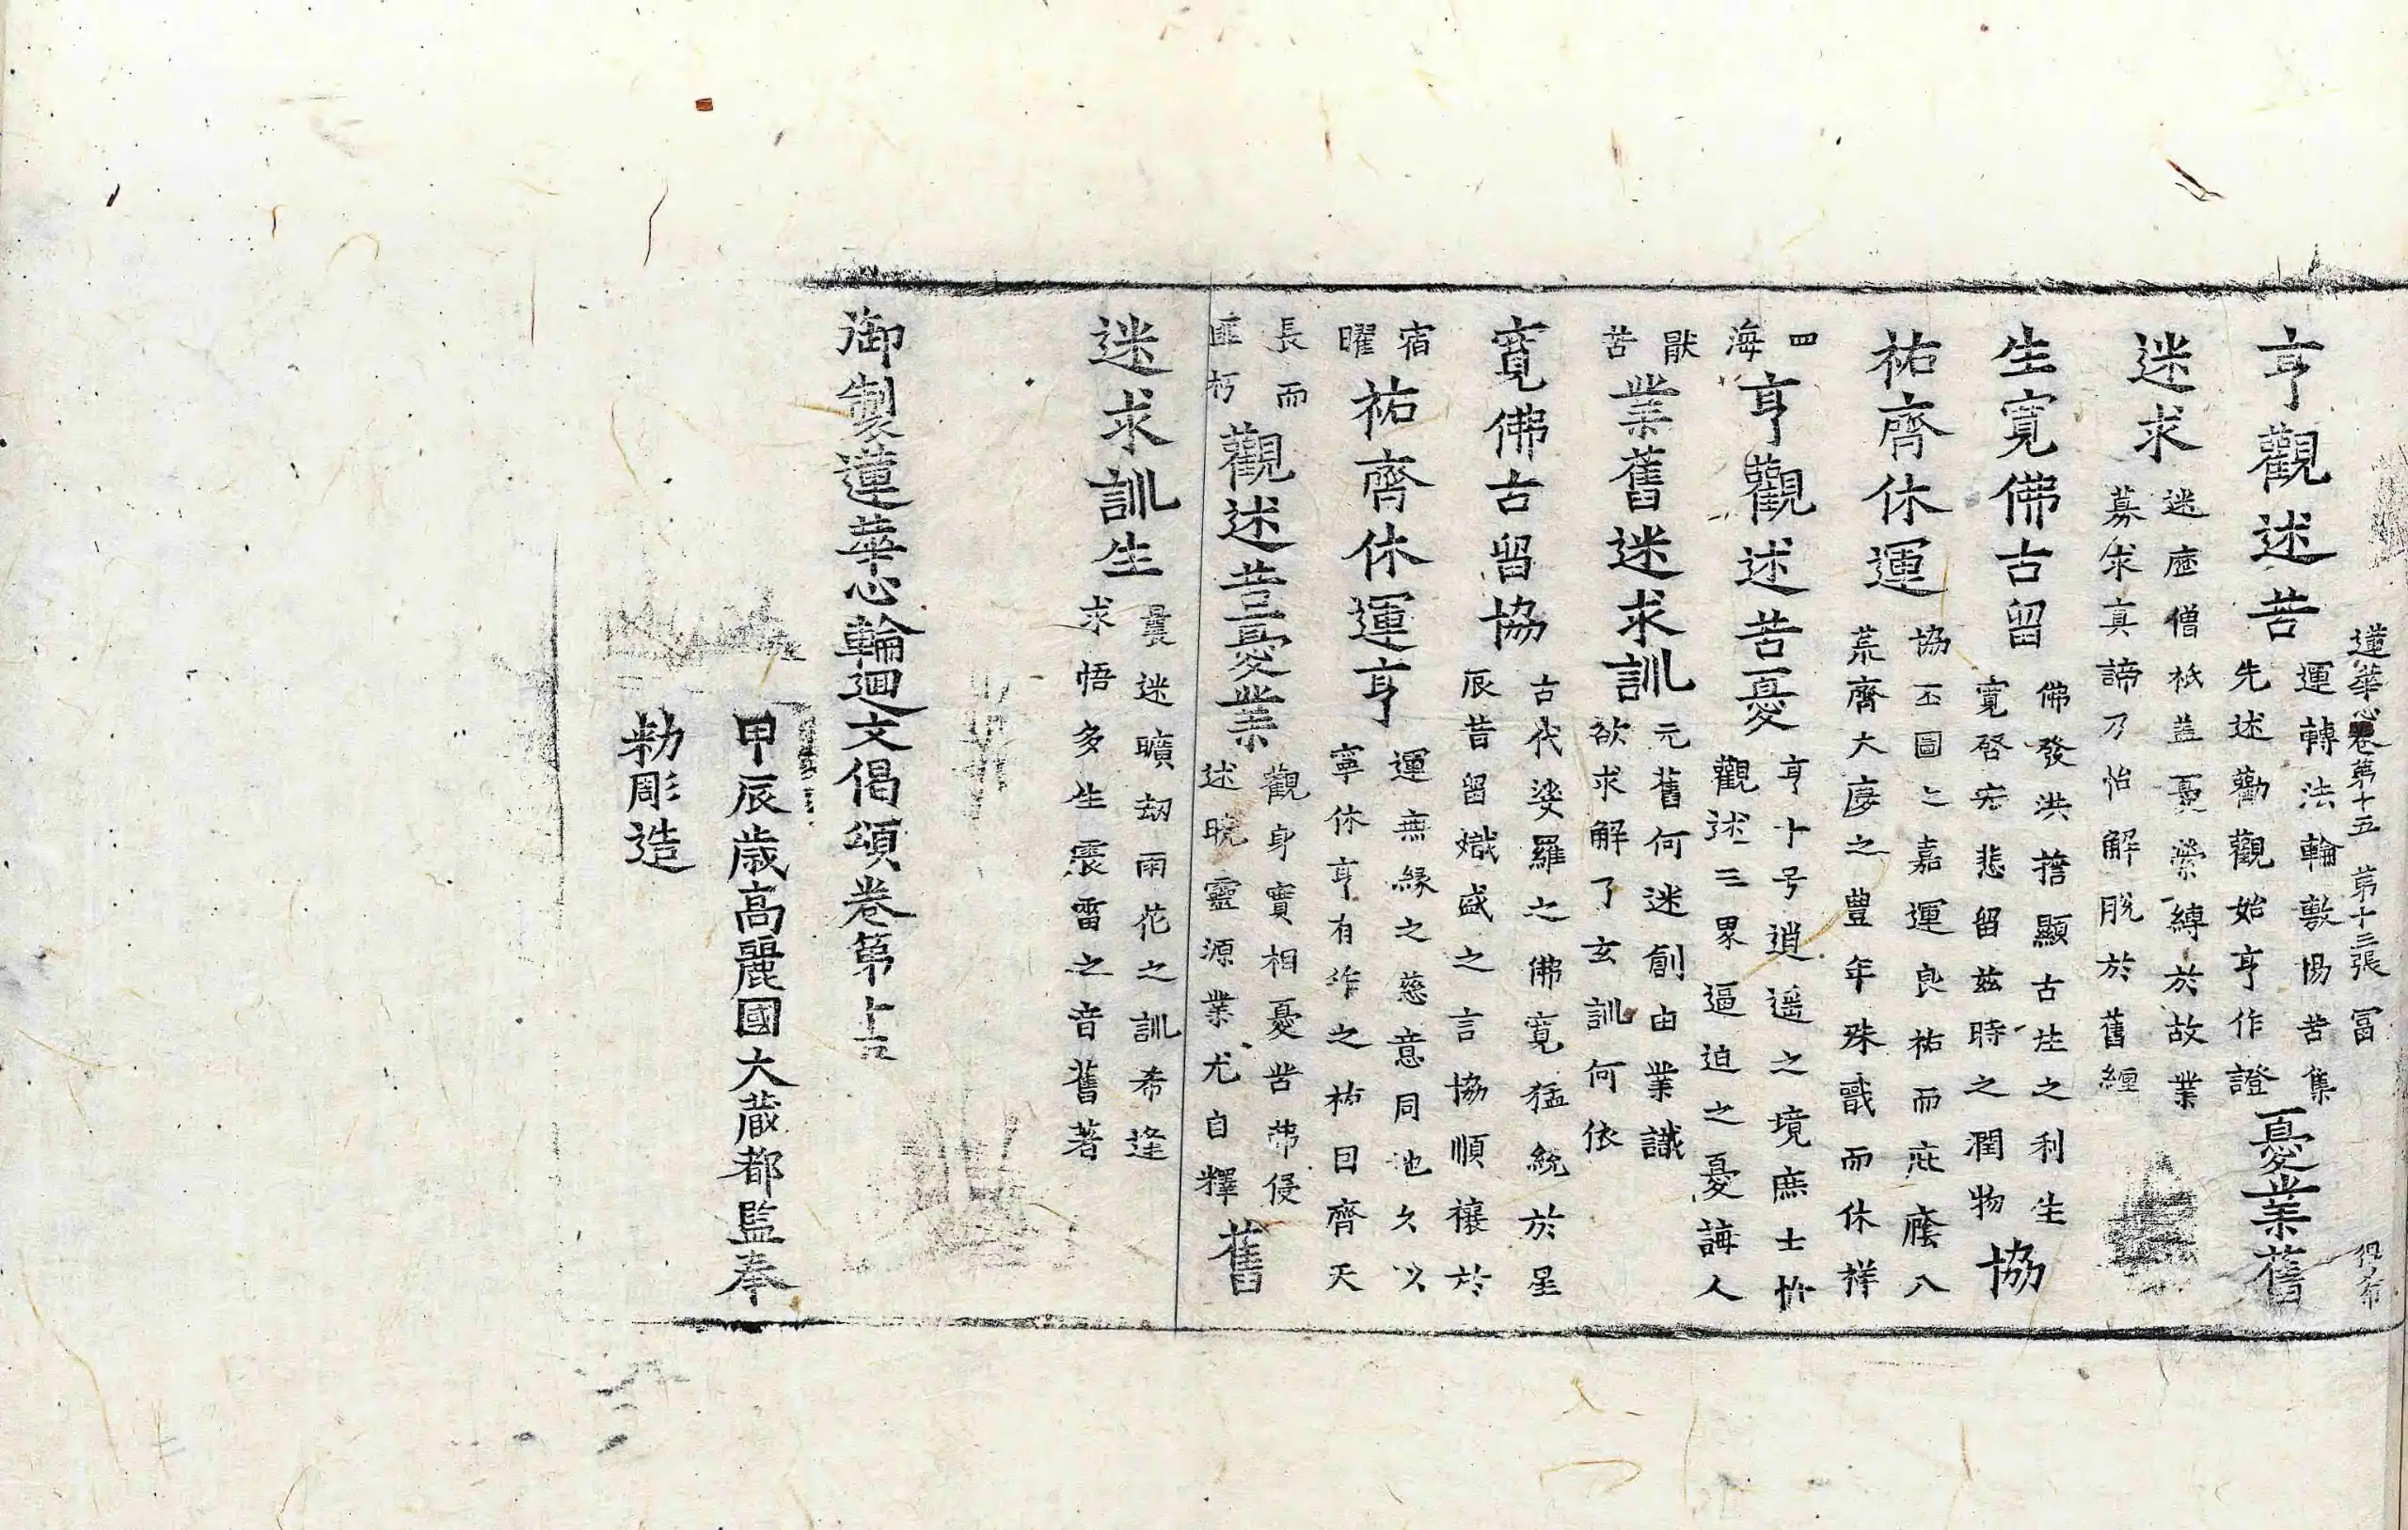 蓮華心卷第十五 第十三張 冨
亨觀述苦 運轉法輪敷揚苦集 先述勸觀始亨作證 憂業舊
迷求 迷應僧祇蓋憂縈縛於故業 募求真諦乃怡解脫於舊纏
生寬佛古留 佛發洪擔顯古往之利生 寬啓宏悲留茲時之潤物 協
祐齊休運 協丕圖之嘉運良祐而庇廕八 荒齊大慶之豊年殊戩而休祥
四海 亨觀述苦憂 亨十号逍遥之境庶士忻 觀述三界逼迫之憂誨人
厭苦 業舊迷求訓 元舊何迷創由業識 欲求解了玄訓何依
寬佛古留協 古代娑羅之佛寬猛統於星 辰昔留熾盛之言協順禳於
宿曜 祐齊休運亨 運無緣之慈意同地久以 寧休亨有作之祐日齊天
長而匪朽 觀述苦憂業 觀身實相憂苦弗侵 述晓靈源業尤自釋 舊
迷求訓生 曩迷曠刧雨花之訓希逢 求悟多生震雷之音舊著
御製蓮華心輪迴文偈頌卷第十五
甲辰歲高麗國大藏都監奉
勑彫造